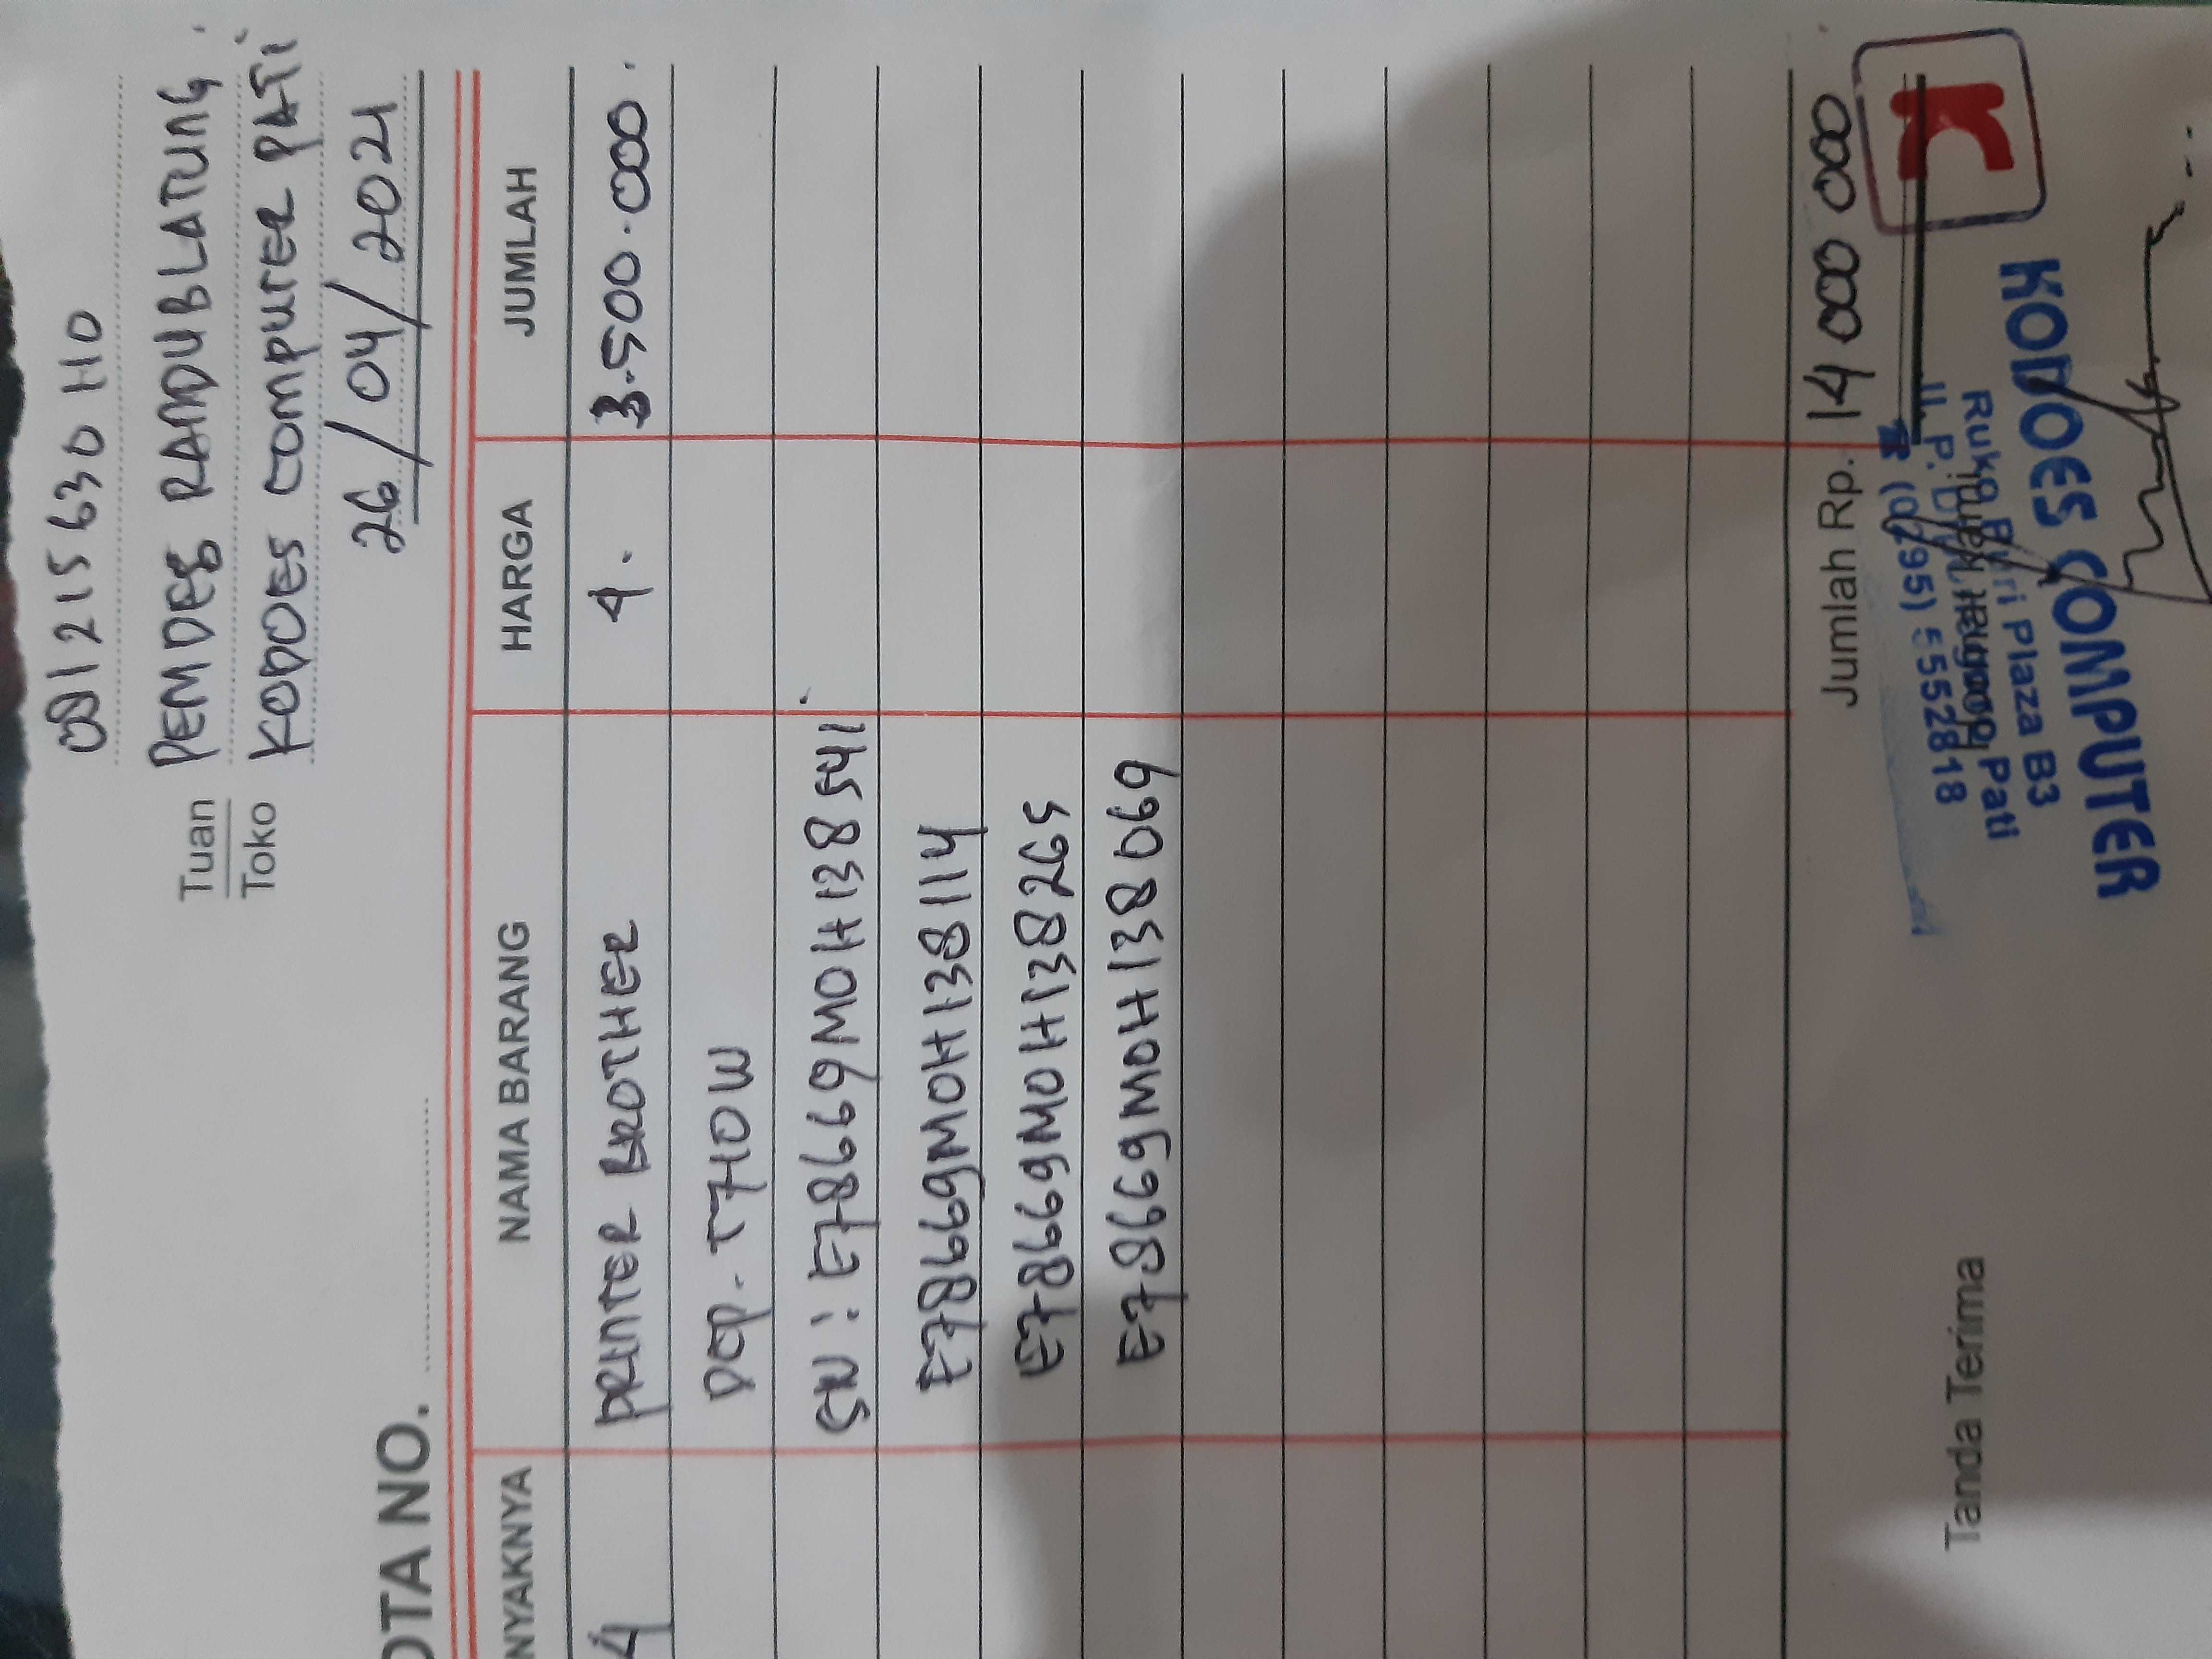 081215630110
Tuan PEMDES RANDUBLATUNG.
Toko KODOES COMPUTER PATI
26/04/2021
OTA NO.
NYAKNYA NAMA BARANG HARGA JUMLAH
4 PRINTER BROTHER 4. 3.500.000.
DCP. T710W
SN: E78669M0H138541
E78669M0H138114
E78669M0H138265
E78669M0H138069
Jumlah Rp. 14 000 000
Tanda Terima
KODOES COMPUTER
Ruko Puri Plaza B3
Pati
(0295) 5552818